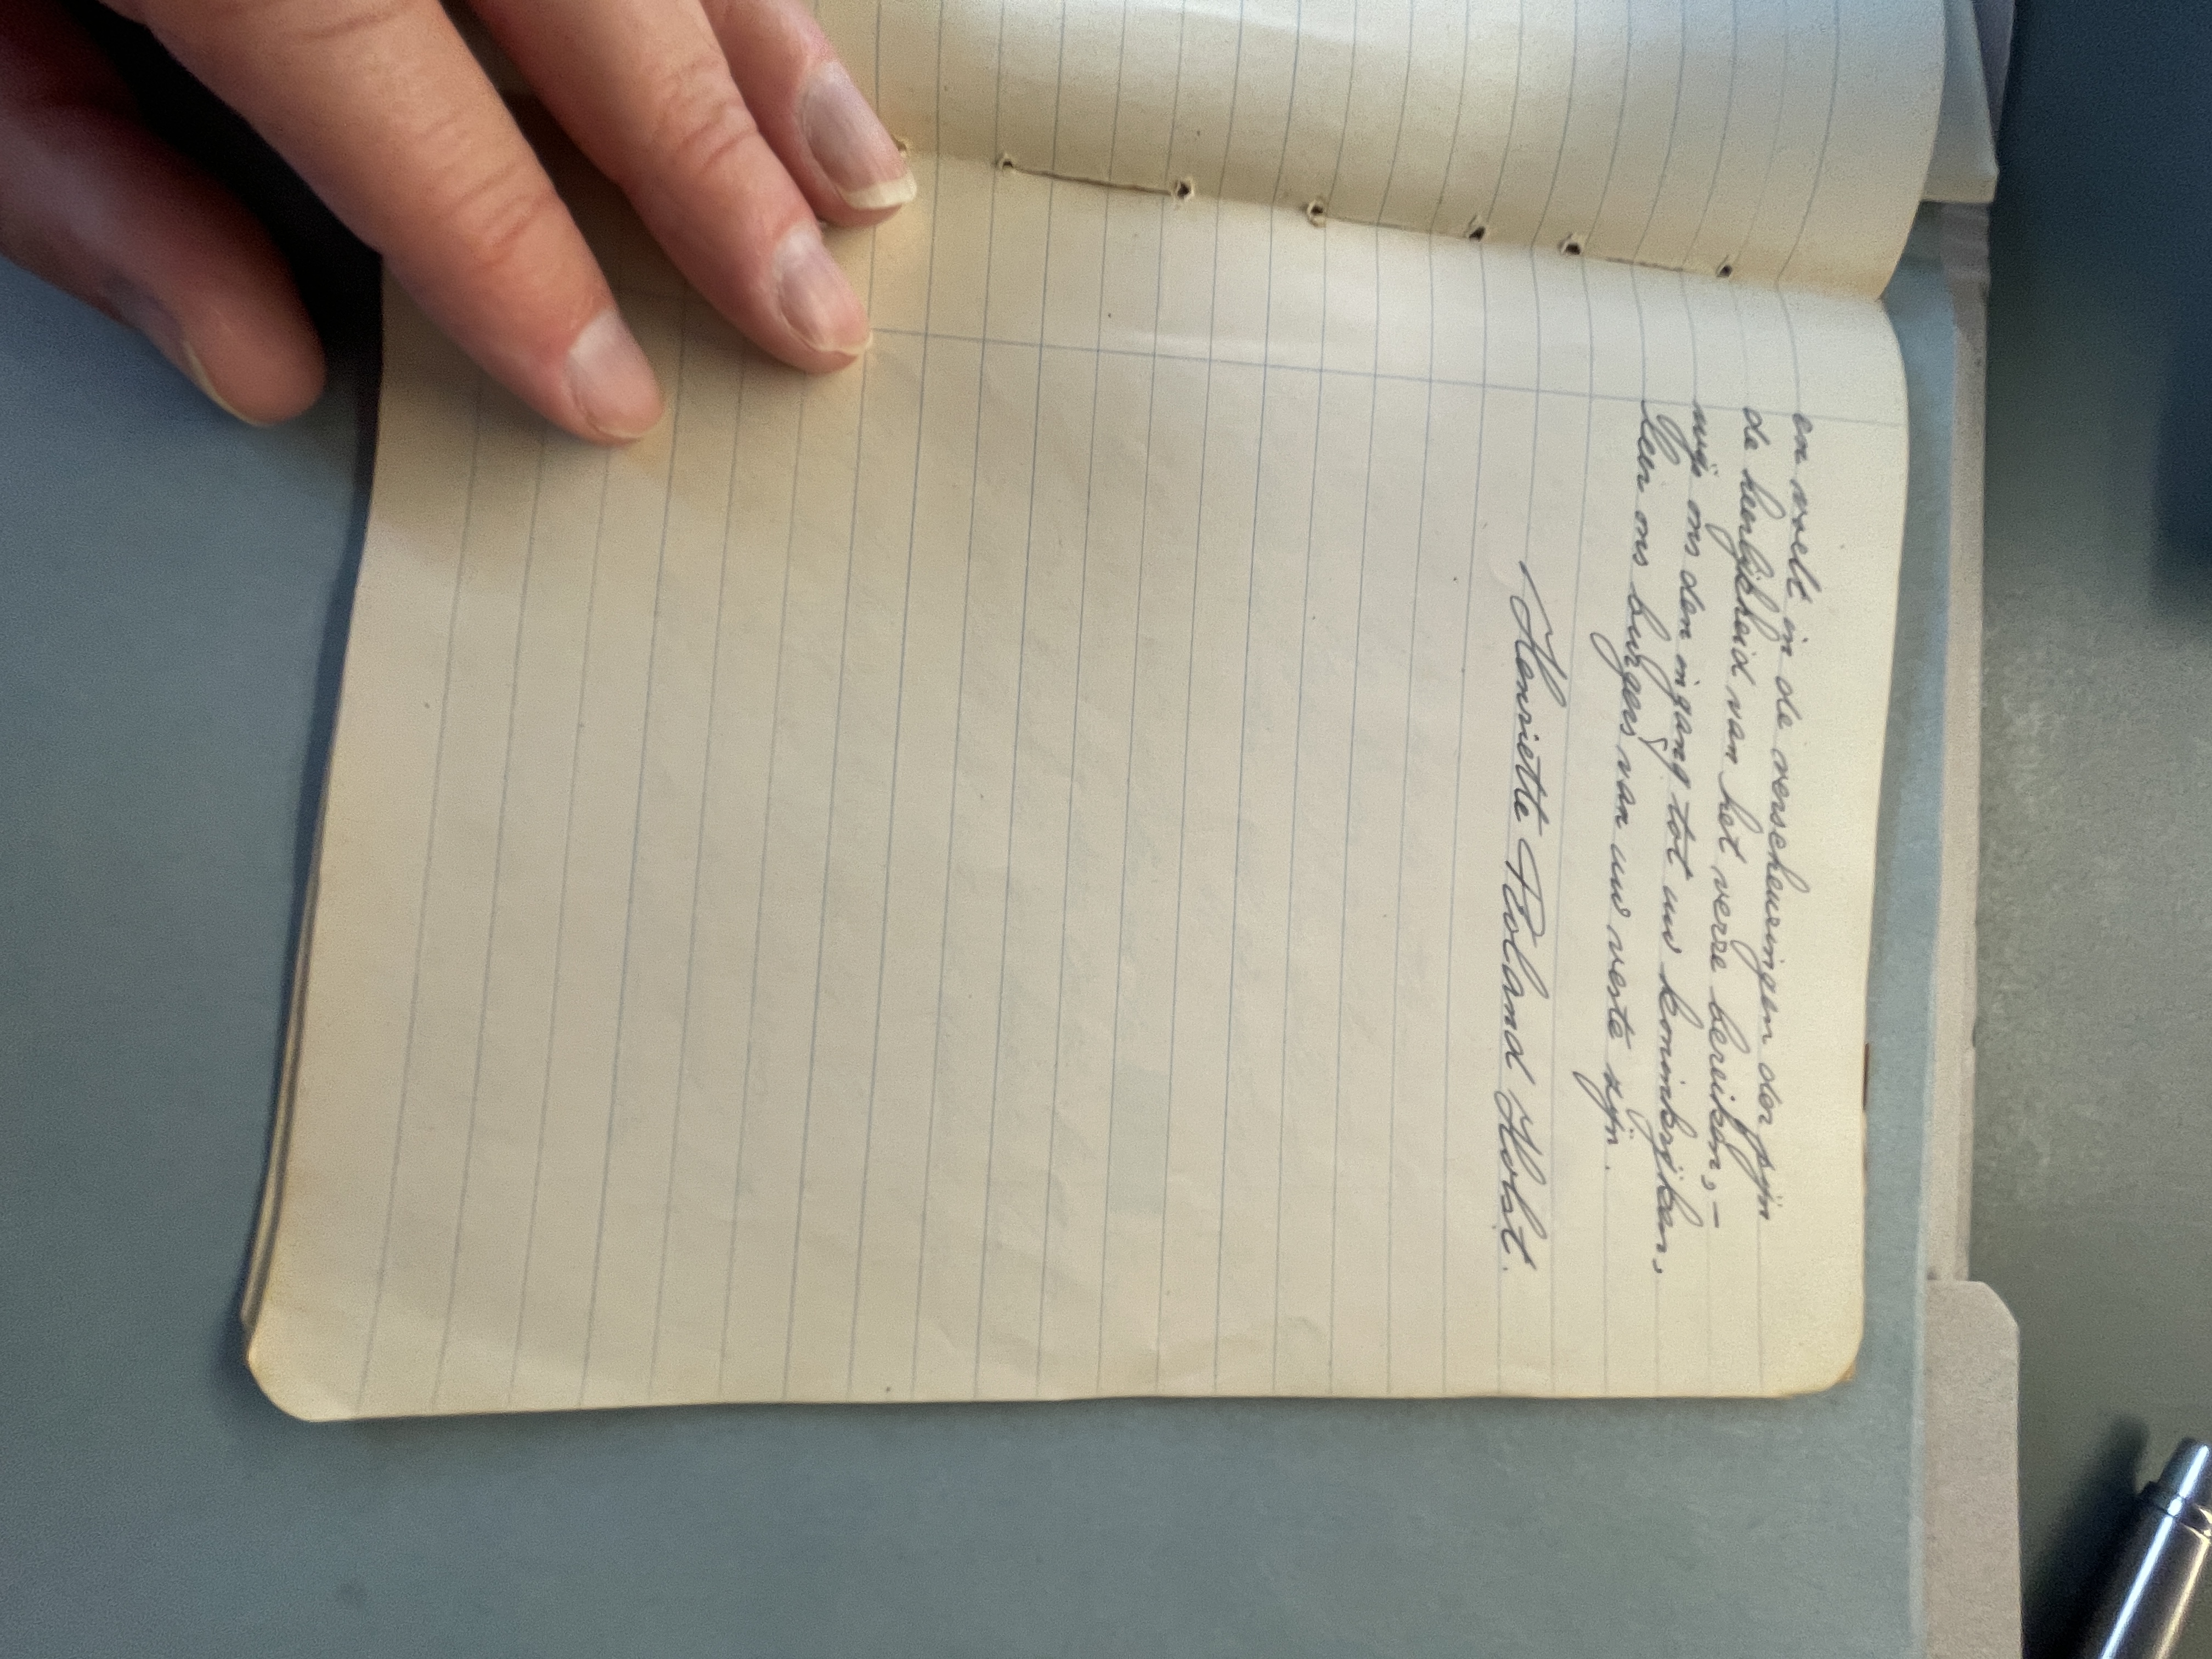 en voelt in de verscheuringen der pijn
de heerlijkheid van het verre bereiken, –
wijs ons den ingang tot uw koninkrijken,
leer ons burgers van uw veste zijn.
Henriette Roland Holst.